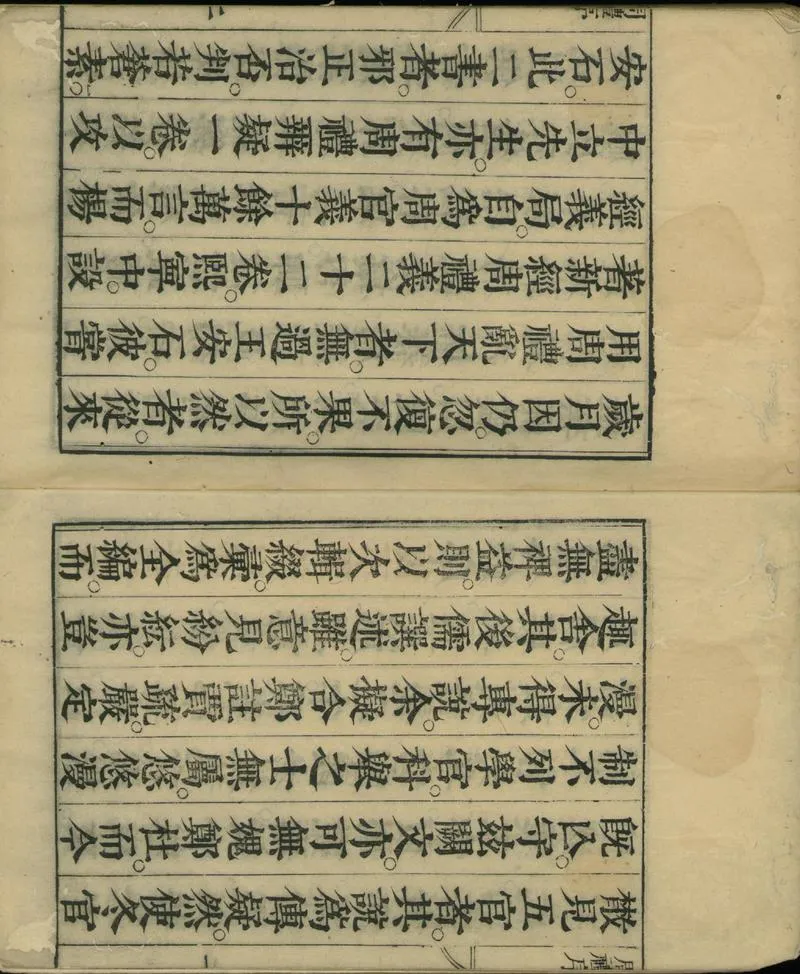 散見五官者。其說為傳疑。然使冬官
既亡。守茲闕文。亦可無愧鄭杜。而今
制不列學官。科舉之士無屬。悠悠漫
漫。未得專說。余擬合鄭註賈疏。嚴定
趣舍。其後儒譔述。雖意見紛紜。亦豈
盡無裨益。則以次輯綴彙為全編。而
一
二
歲月因仍。忽復不果。所以然者。從來
用周禮亂天下者。無過王安石。彼嘗
著新經周禮義二十二卷。熙寧中。設
經義局。自為周官義十餘萬言。而楊
中立先生。亦有周禮辨疑一卷。以攻
安石。此二書者。邪正治否。判若蒼素。